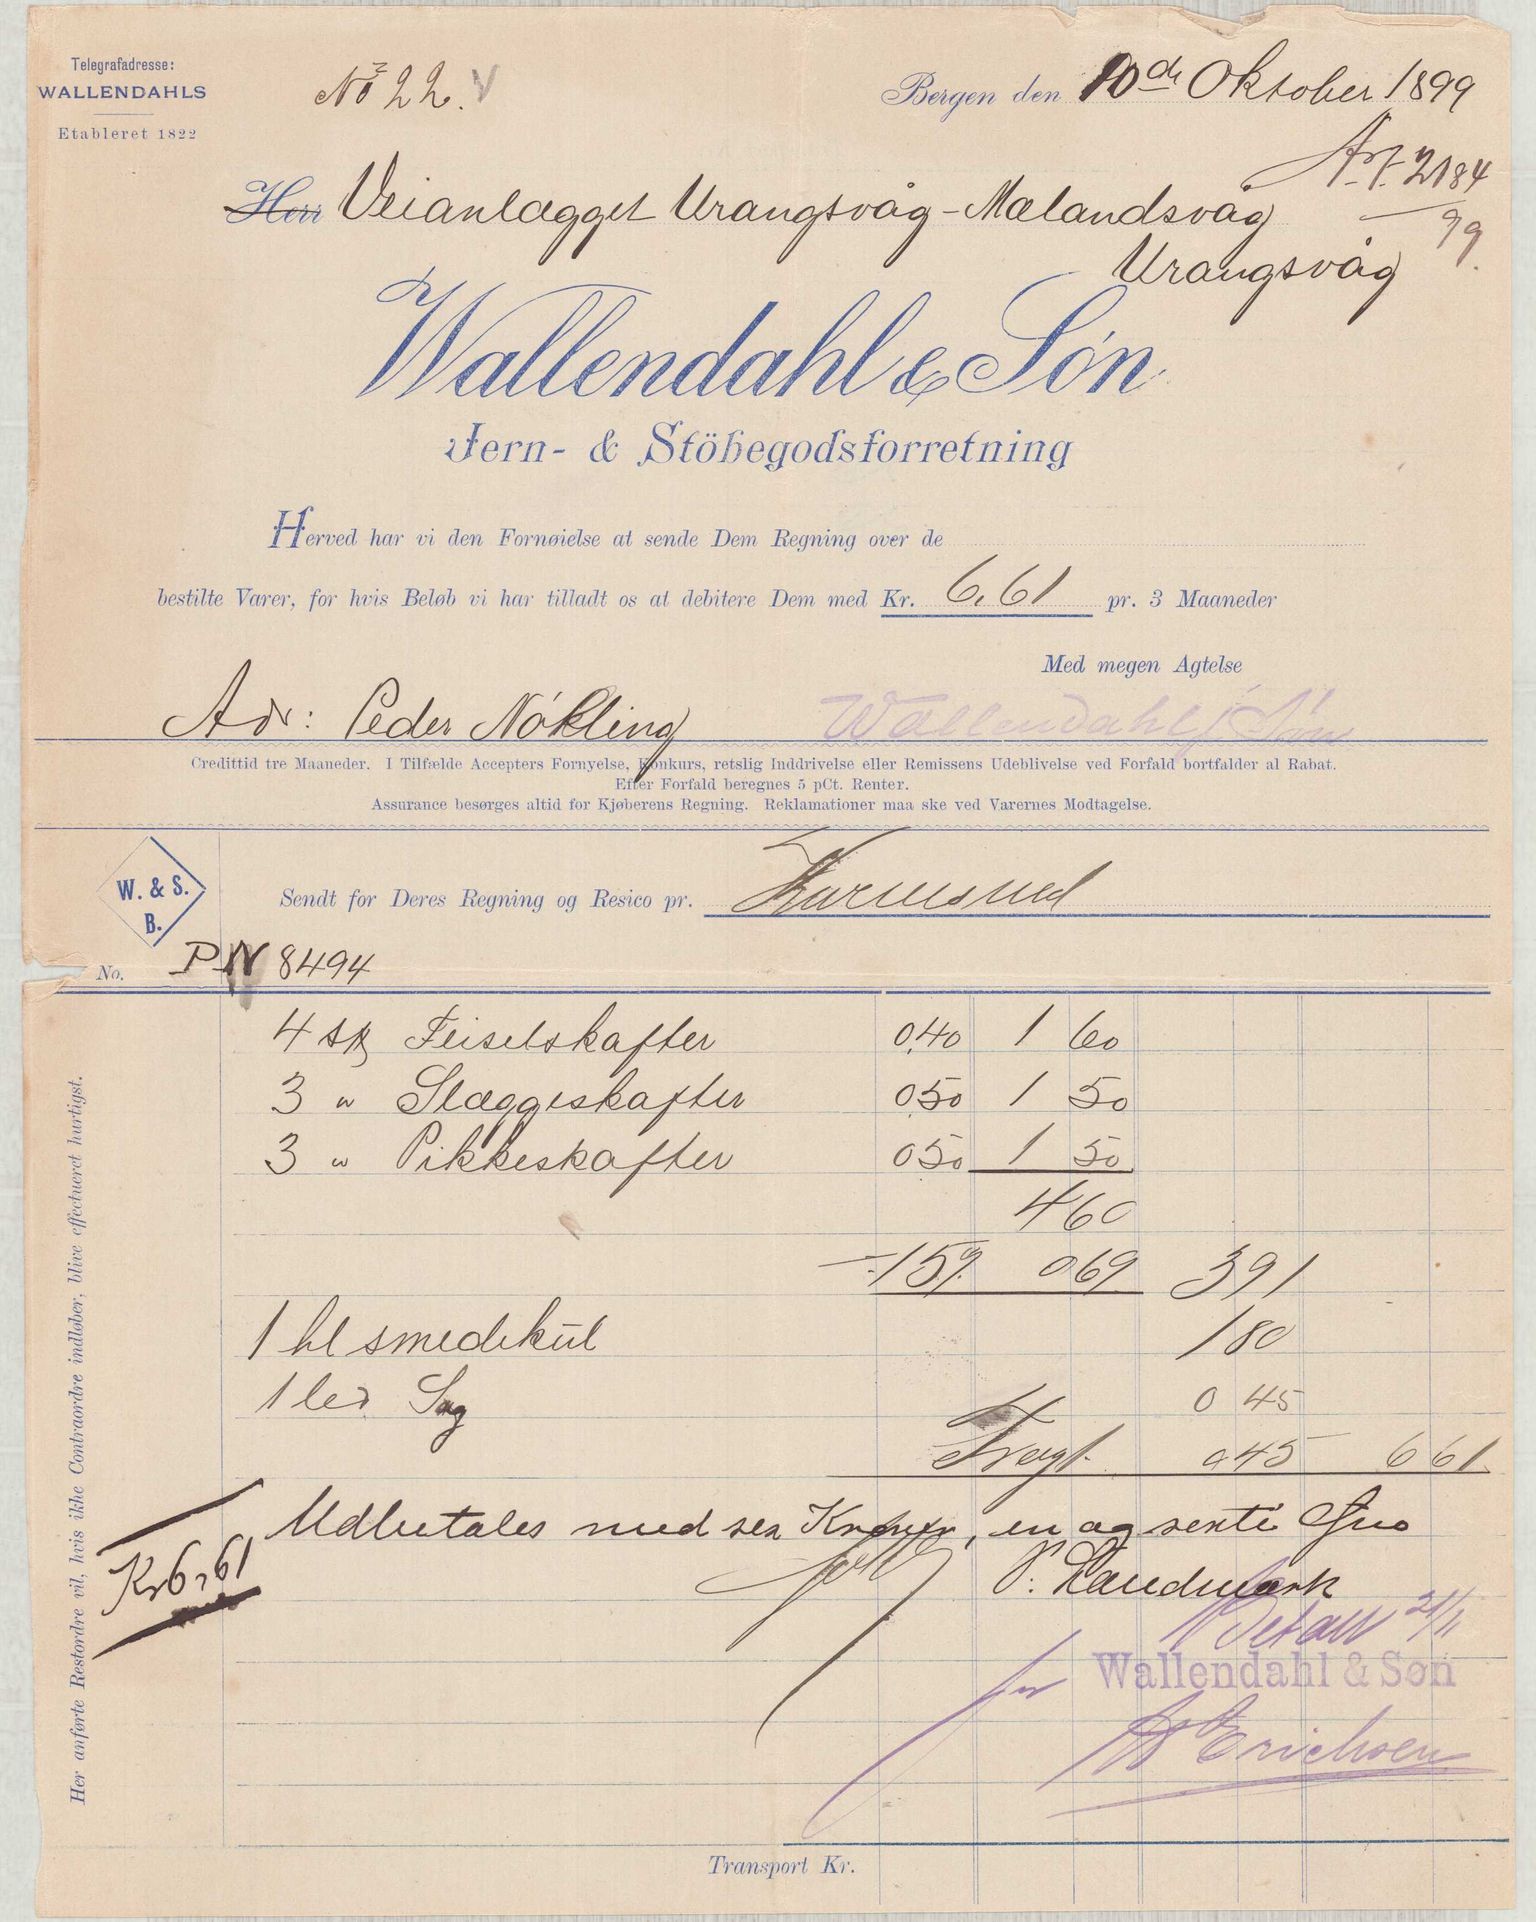 Telegrafadresse:
WALLENDAHLS
Etableret 1822
No 22.
Bergen den 10de Oktober 1899
Art. 2184
99.
Herr Veianlægget Urangsvåg - Mælandsvåg
Urangsvåg
Wallendahl & Søn
Jern- & Stöbegodsforretning
Herved har vi den Fornøielse at sende Dem Regning over de
bestilte Varer, for hvis Beløb vi har tilladt os at debitere Dem med Kr. 6,61 pr. 3 Maaneder
Med megen Agtelse
Adr: Peder Nökling Wallendahl & Søn
Credittid tre Maaneder. I Tilfælde Accepters Fornyelse, Konkurs, retslig Inddrivelse eller Remissens Udeblivelse ved Forfald bortfalder al Rabat.
Efter Forfald beregnes 5 pCt. Renter.
Assurance besørges altid for Kjøberens Regning. Reklamationer maa ske ved Varernes Modtagelse.
W. & S.
B.
Sendt for Deres Regning og Resico pr. Karmsund
No. PN 8494
4 stk Feiselskafter 0,40 1 60
3 " Slæggeskafter 0,50 1 50
3 " Pikkeskafter 0 50 1 50
4 60
÷ 15% 0 69 3 91
1 hl smedekul 1 80
1 ler Sæg 0 45
Fragt 0 45 6 61
Udbetales med sex Kroner, en og sexti Øre
Kr 6,61
P. Landmark
Betalt 21/11
for Wallendahl & Søn
Erichsen
Her anførte Restordre vil, hvis ikke Contraordre indløber, blive effectueret hurtigst.
Transport Kr.